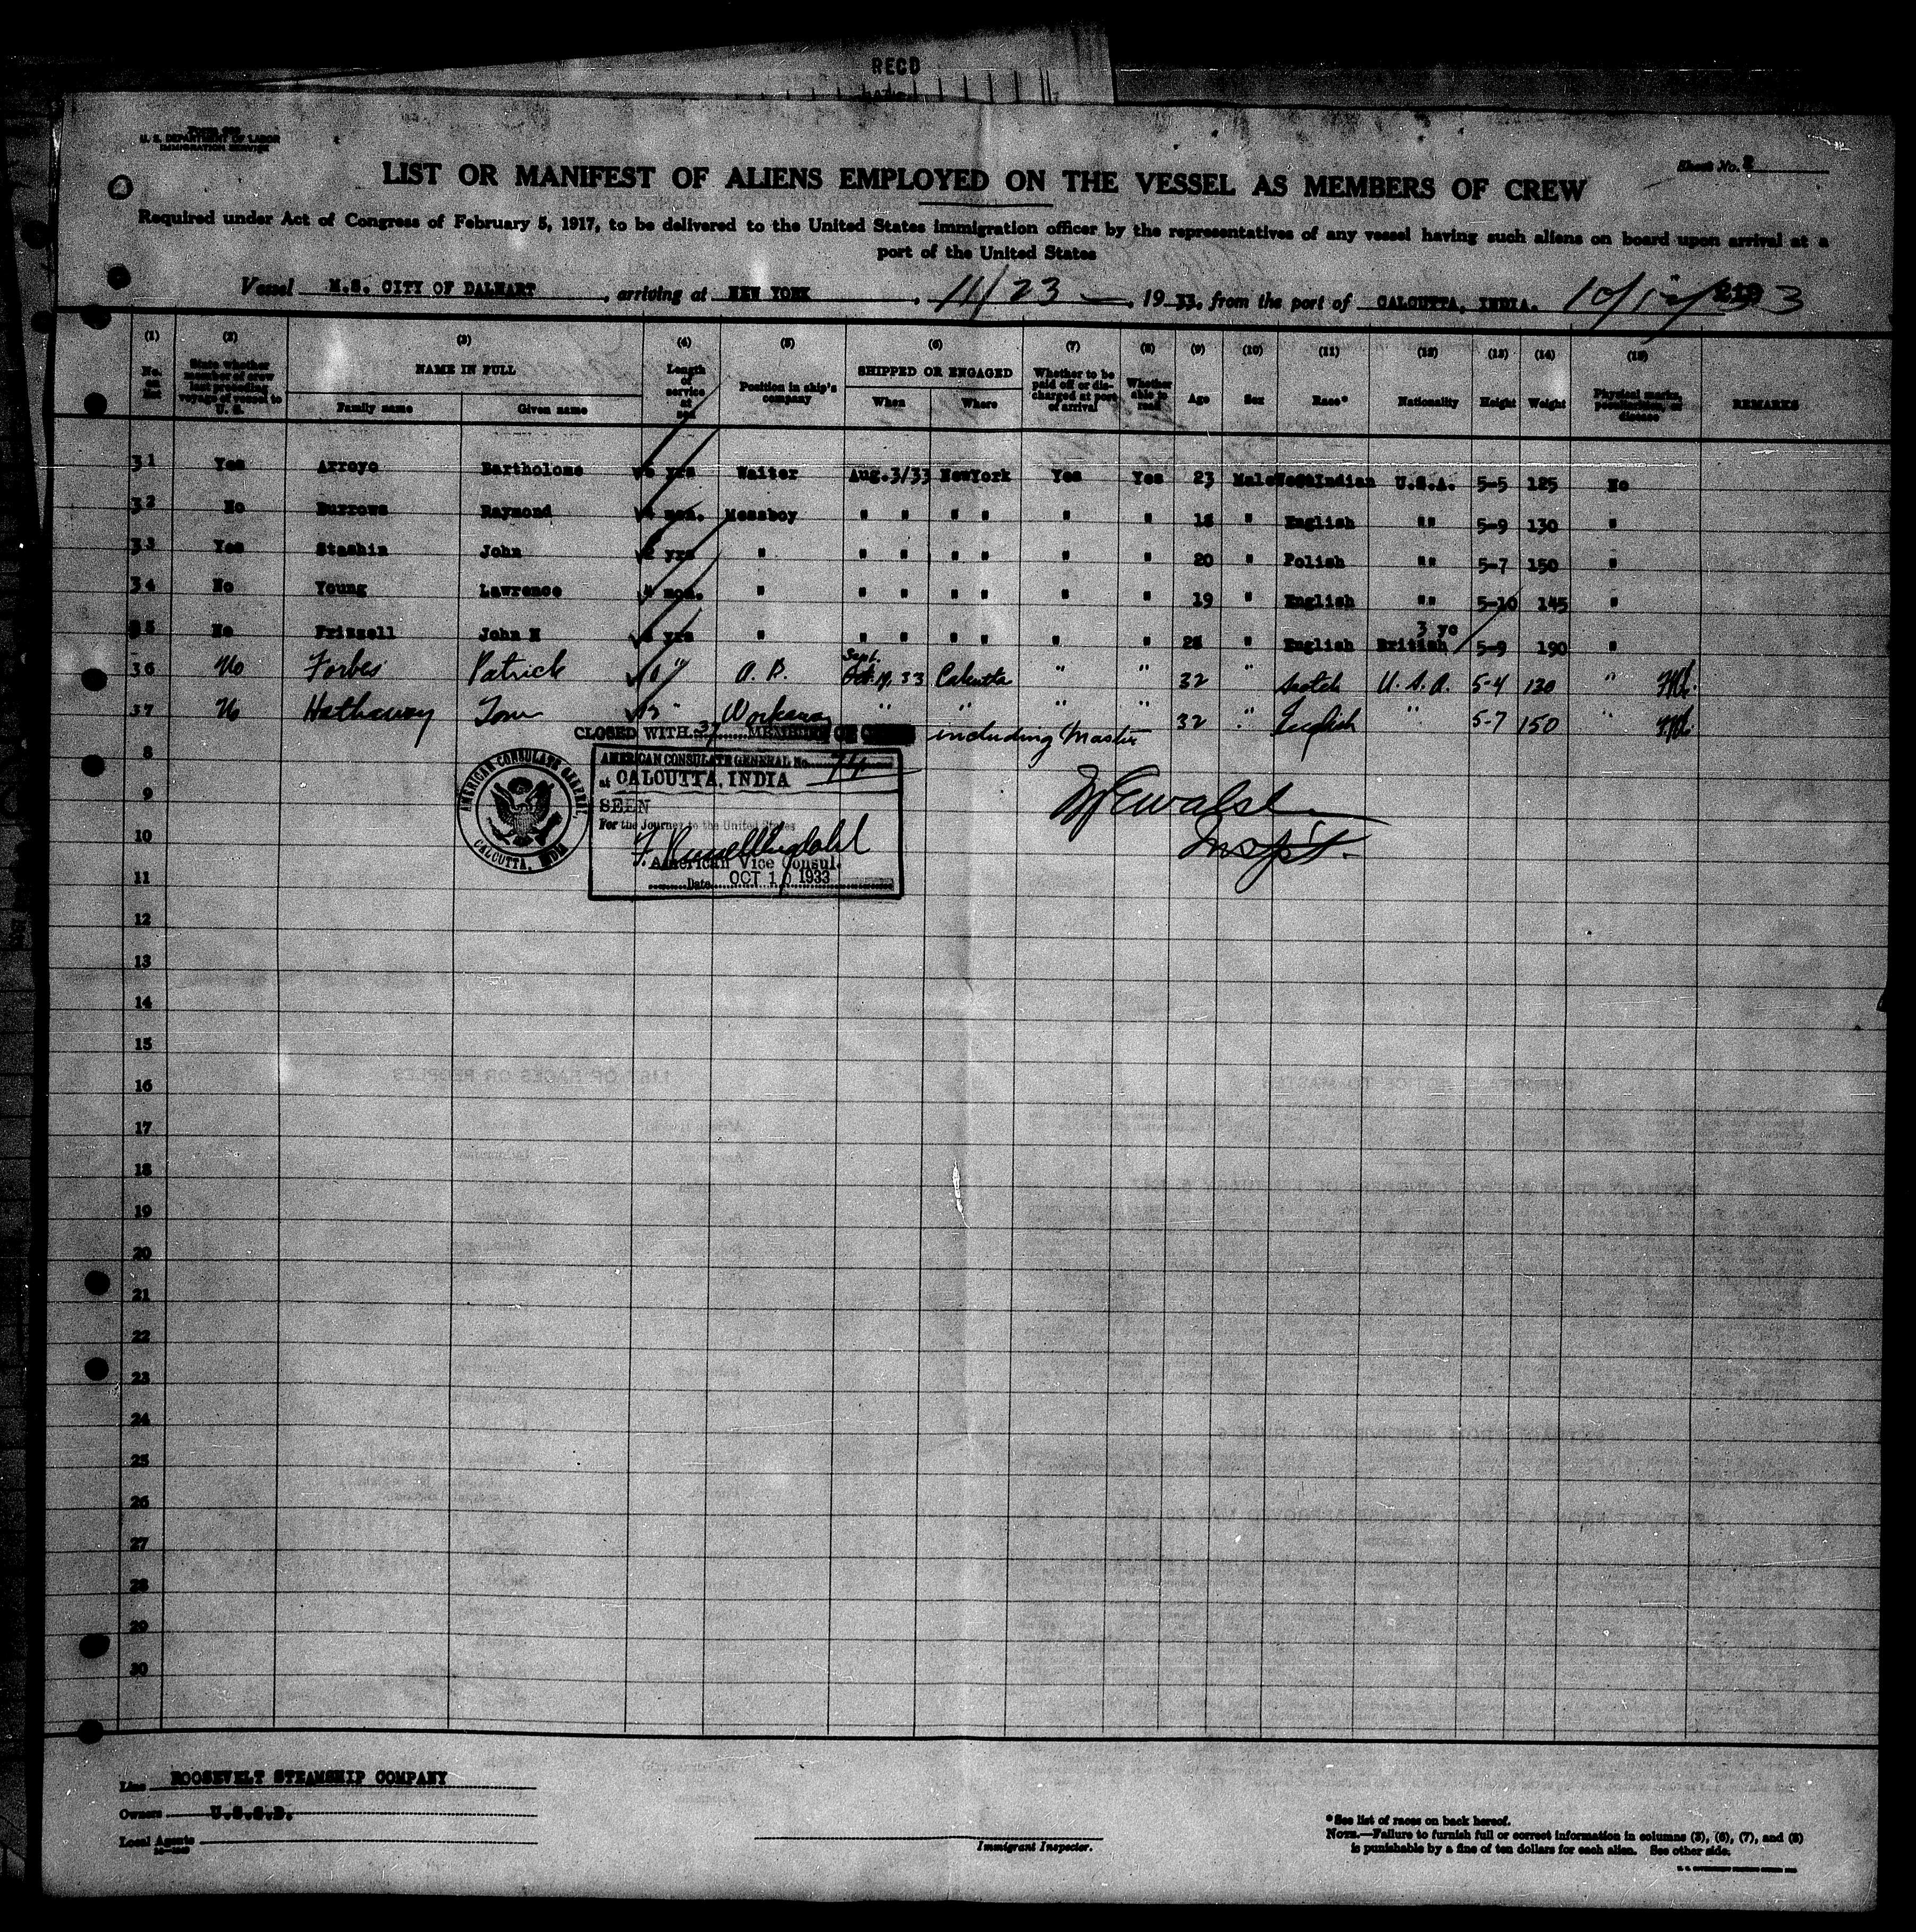 RECD
U. S. DEPARTMENT OF LABOR
IMMIGRATION SERVICE
Sheet No.
LIST OR MANIFEST OF ALIENS EMPLOYED ON THE VESSEL AS MEMBERS OF CREW
Required under Act of Congress of February 5, 1917, to be delivered to the United States immigration officer by the representatives of any vessel having such aliens on board upon arrival at a
port of the United States
Vessel M.S. CITY OF DALHART, arriving at NEW YORK, 11/23, 1933, from the port of CALCUTTA, INDIA.
(1) (2) (3) (4) (5) (6) (7) (8) (9) (10) (11) (12) (13) (14) (15)
No. on list State whether member of crew last preceding voyage of vessel to U. S. NAME IN FULL Family name Given name Length of service at sea Position in ship's company SHIPPED OR ENGAGED When Where Whether to be paid off or discharged at port of arrival Whether able to read Age Sex Race* Nationality Height Weight Physical marks, peculiarities, or disease REMARKS
31 Yes Arroyo Bartholome yrs Waiter Aug.3/33 NewYork Yes Yes 23 Male WestIndian U.S.A. 5-5 125 No
32 No Burrows Raymond mos. Messboy " " " " " " 18 " English "" 5-9 130 "
33 Yes Stashin John 2 yrs " " " " " " " 20 " Polish "" 5-7 150 "
34 No Young Lawrence 4 mos. " " " " " " " 19 " English "" 5-10 145 "
35 No Frissell John H yrs " " " " " " " " English British 3 yo 5-9 190 "
36 No Forbes Patrick " A. B. Sept. 33 Calcutta " " 32 " Scotch U. S. A. 5-4 130 "
37 No Hathaway Tom " Workaway " " " " 32 " English " 5-7 150 "
CLOSED WITH 37 MEMBERS OF CREW including Master
AMERICAN CONSULATE GENERAL No. 74
at CALCUTTA, INDIA
SEEN
For the Journey to the United States
American Vice Consul.
Date OCT 10 1933
AMERICAN CONSULATE GENERAL
CALCUTTA, INDIA
Insp't.
8
9
10
11
12
13
14
15
16
17
18
19
20
21
22
23
24
25
26
27
28
29
30
Line ROOSEVELT STEAMSHIP COMPANY
Owners U.S.S.B.
Local Agents
Immigrant Inspector.
*See list of races on back hereof.
NOTE.—Failure to furnish full or correct information in columns (3), (6), (7), and (8)
is punishable by a fine of ten dollars for each alien. See other side.